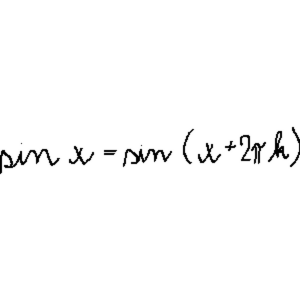 sin x = sin (x + 2πk)